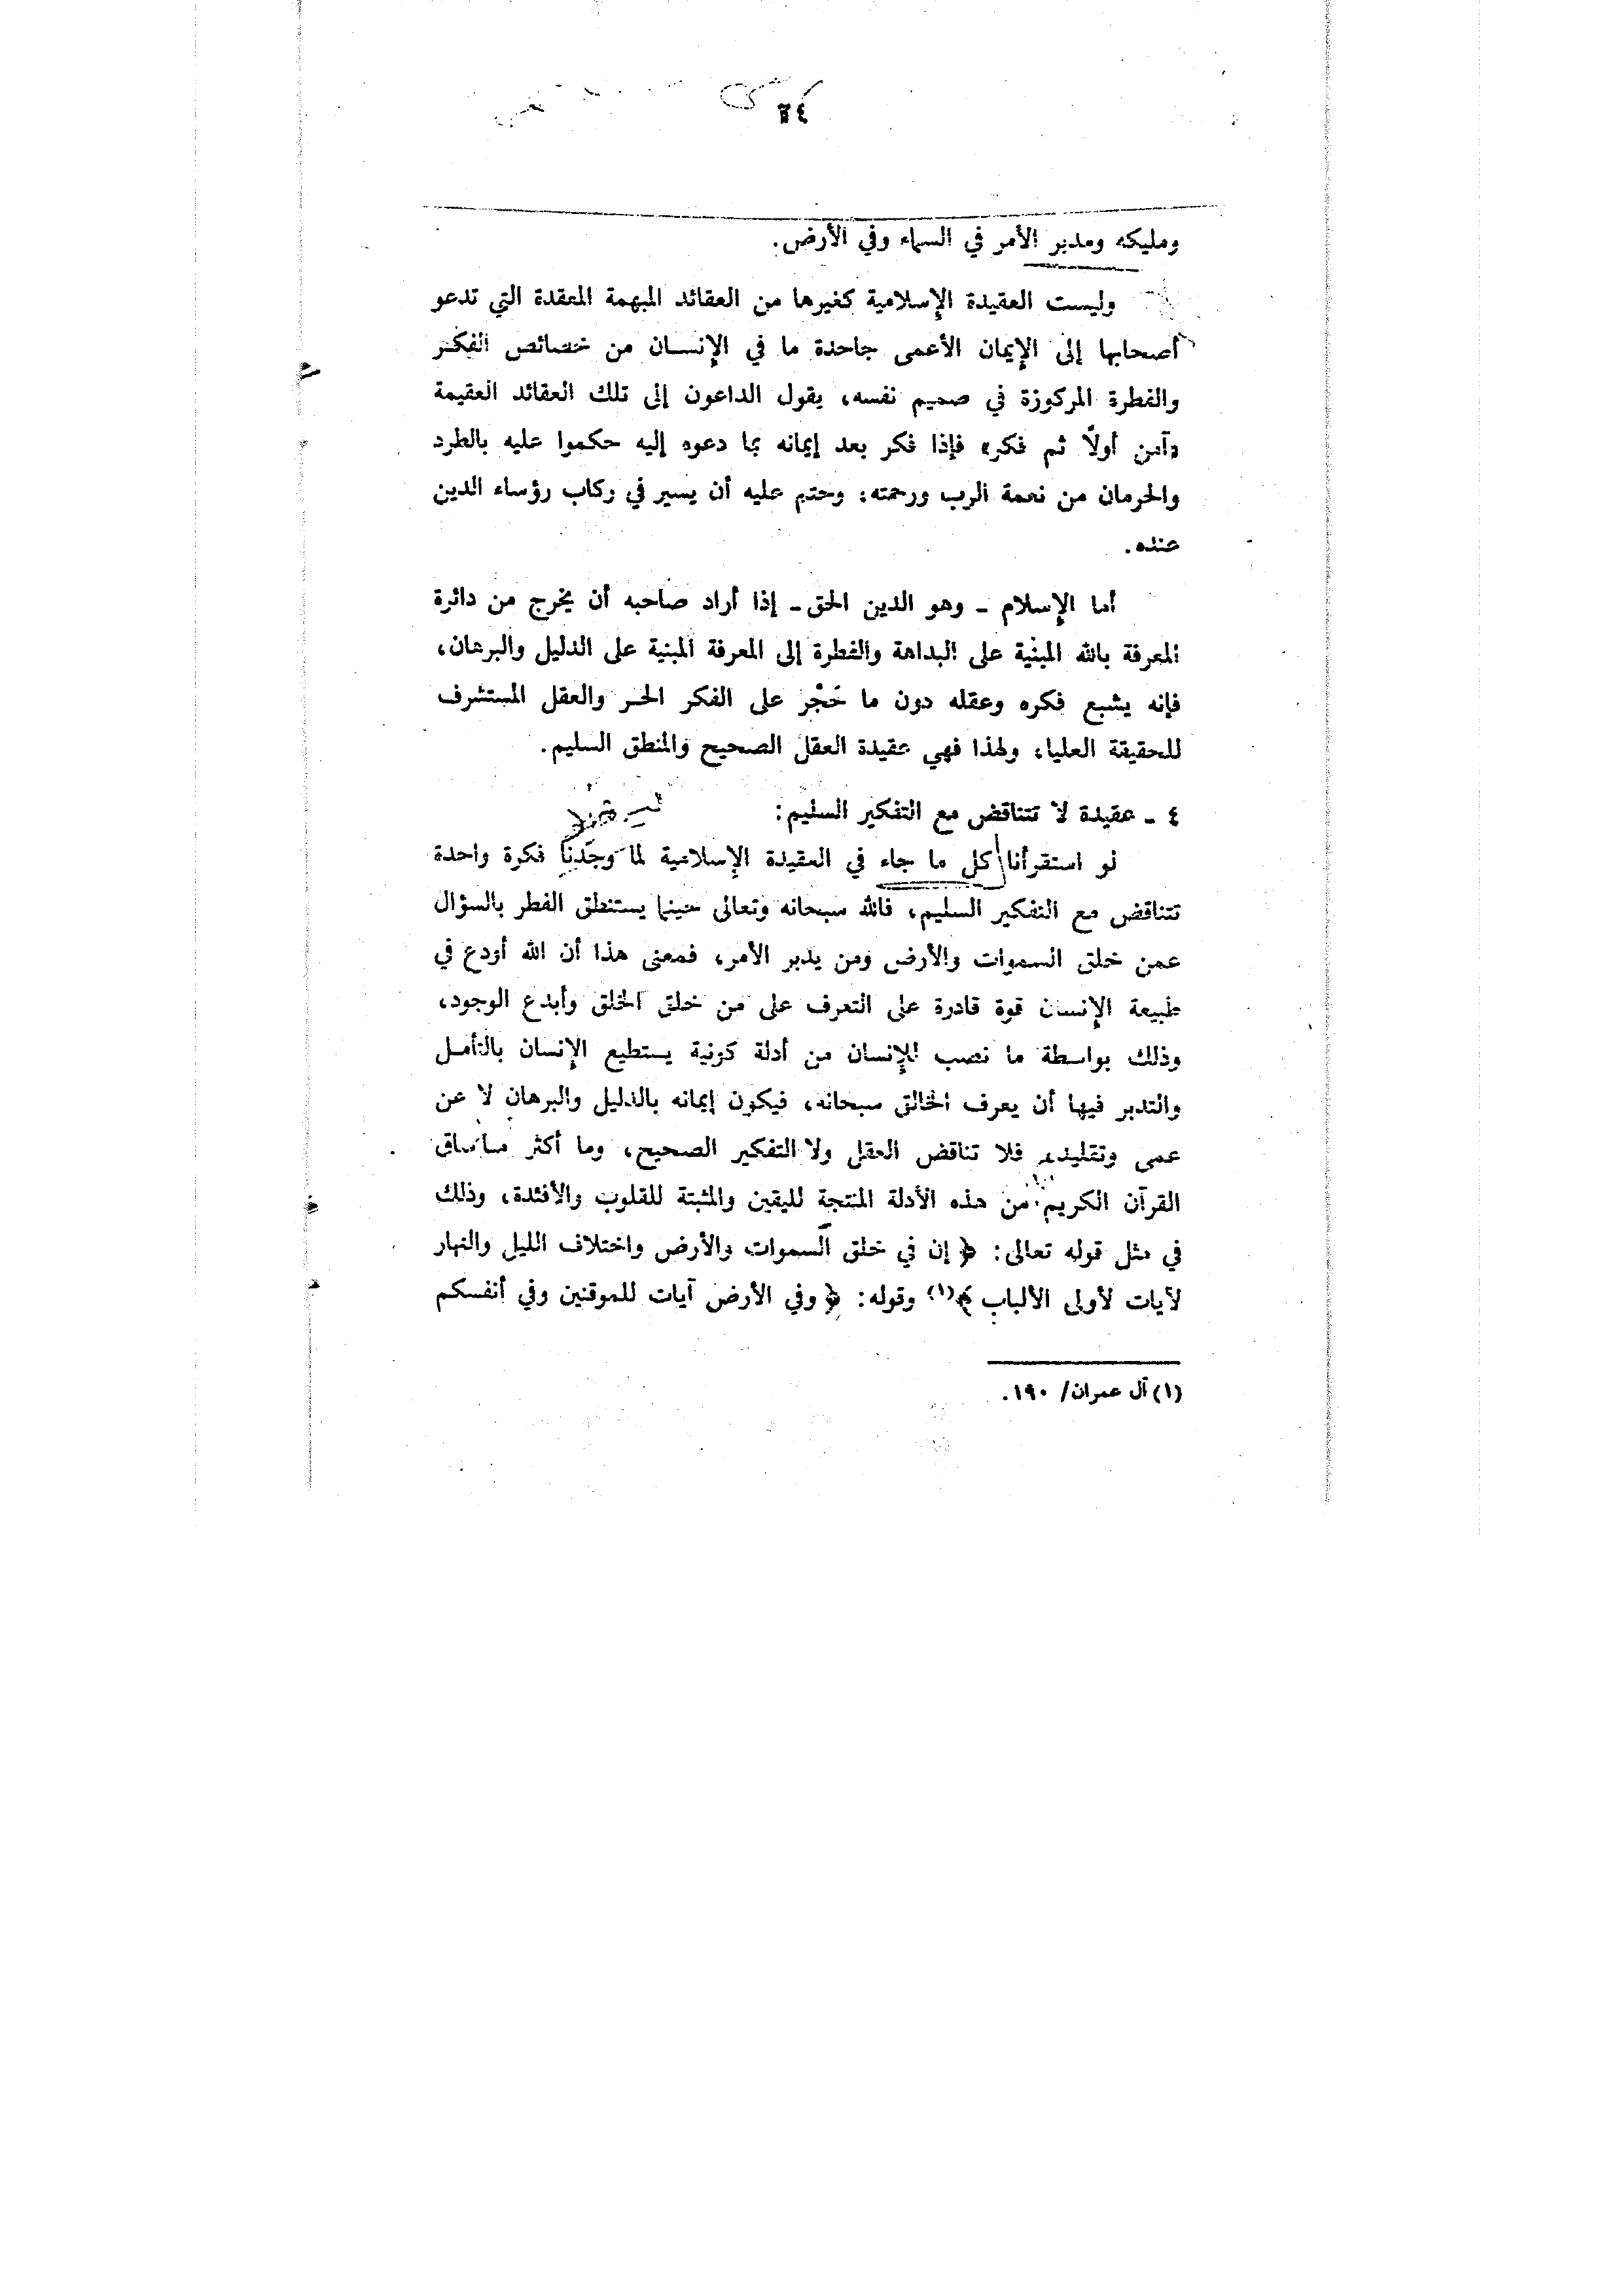 ٣٤
ومليكه ومدبر الأمر في السماء وفي الأرض.
وليست العقيدة الإسلامية كغيرها من العقائد المبهمة المعقدة التي تدعو
أصحابها إلى الإيمان الأعمى جاحدة ما في الإنسان من خصائص الفكر
والفطرة المركوزة في صميم نفسه، يقول الداعون إلى تلك العقائد العقيمة
«آمن أولاً ثم فكر» فإذا فكر بعد إيمانه بما دعوه إليه حكموا عليه بالطرد
والحرمان من نعمة الرب ورحمته: وحتم عليه أن يسير في ركاب رؤساء الدين
عنده.
أما الإسلام - وهو الدين الحق - إذا أراد صاحبه أن يخرج من دائرة
المعرفة بالله المبنية على البداهة والفطرة إلى المعرفة المبنية على الدليل والبرهان،
فإنه يشبع فكره وعقله دون ما حَجْر على الفكر الحر والعقل المستشرف
للحقيقة العليا، ولهذا فهي عقيدة العقل الصحيح والمنطق السليم.
٤ - عقيدة لا تتناقض مع التفكير السليم:
لو استقرأنا كل ما جاء في العقيدة الإسلامية لما وجَدنا فكرة واحدة
تتناقض مع التفكير السليم، فالله سبحانه وتعالى حينما يستنطق الفطر بالسؤال
عمن خلق السموات والأرض ومن يدبر الأمر، فمعنى هذا أن الله أودع في
طبيعة الإنسان قوة قادرة على التعرف على من خلق الخلق وأبدع الوجود،
وذلك بواسطة ما نصب للإنسان من أدلة كونية يستطيع الإنسان بالتأمل
والتدبر فيها أن يعرف الخالق سبحانه، فيكون إيمانه بالدليل والبرهان لا عن
عمى وتقليد، فلا تناقض العقل ولا التفكير الصحيح، وما أكثر ما ساق
القرآن الكريم من هذه الأدلة المنتجة لليقين والمثبتة للقلوب والأفئدة، وذلك
في مثل قوله تعالى: ﴿إن في خلق السموات والأرض واختلاف الليل والنهار
لآيات لأولى الألباب﴾(١) وقوله: ﴿وفي الأرض آيات للموقنين وفي أنفسكم
(١) آل عمران/ ١٩٠.